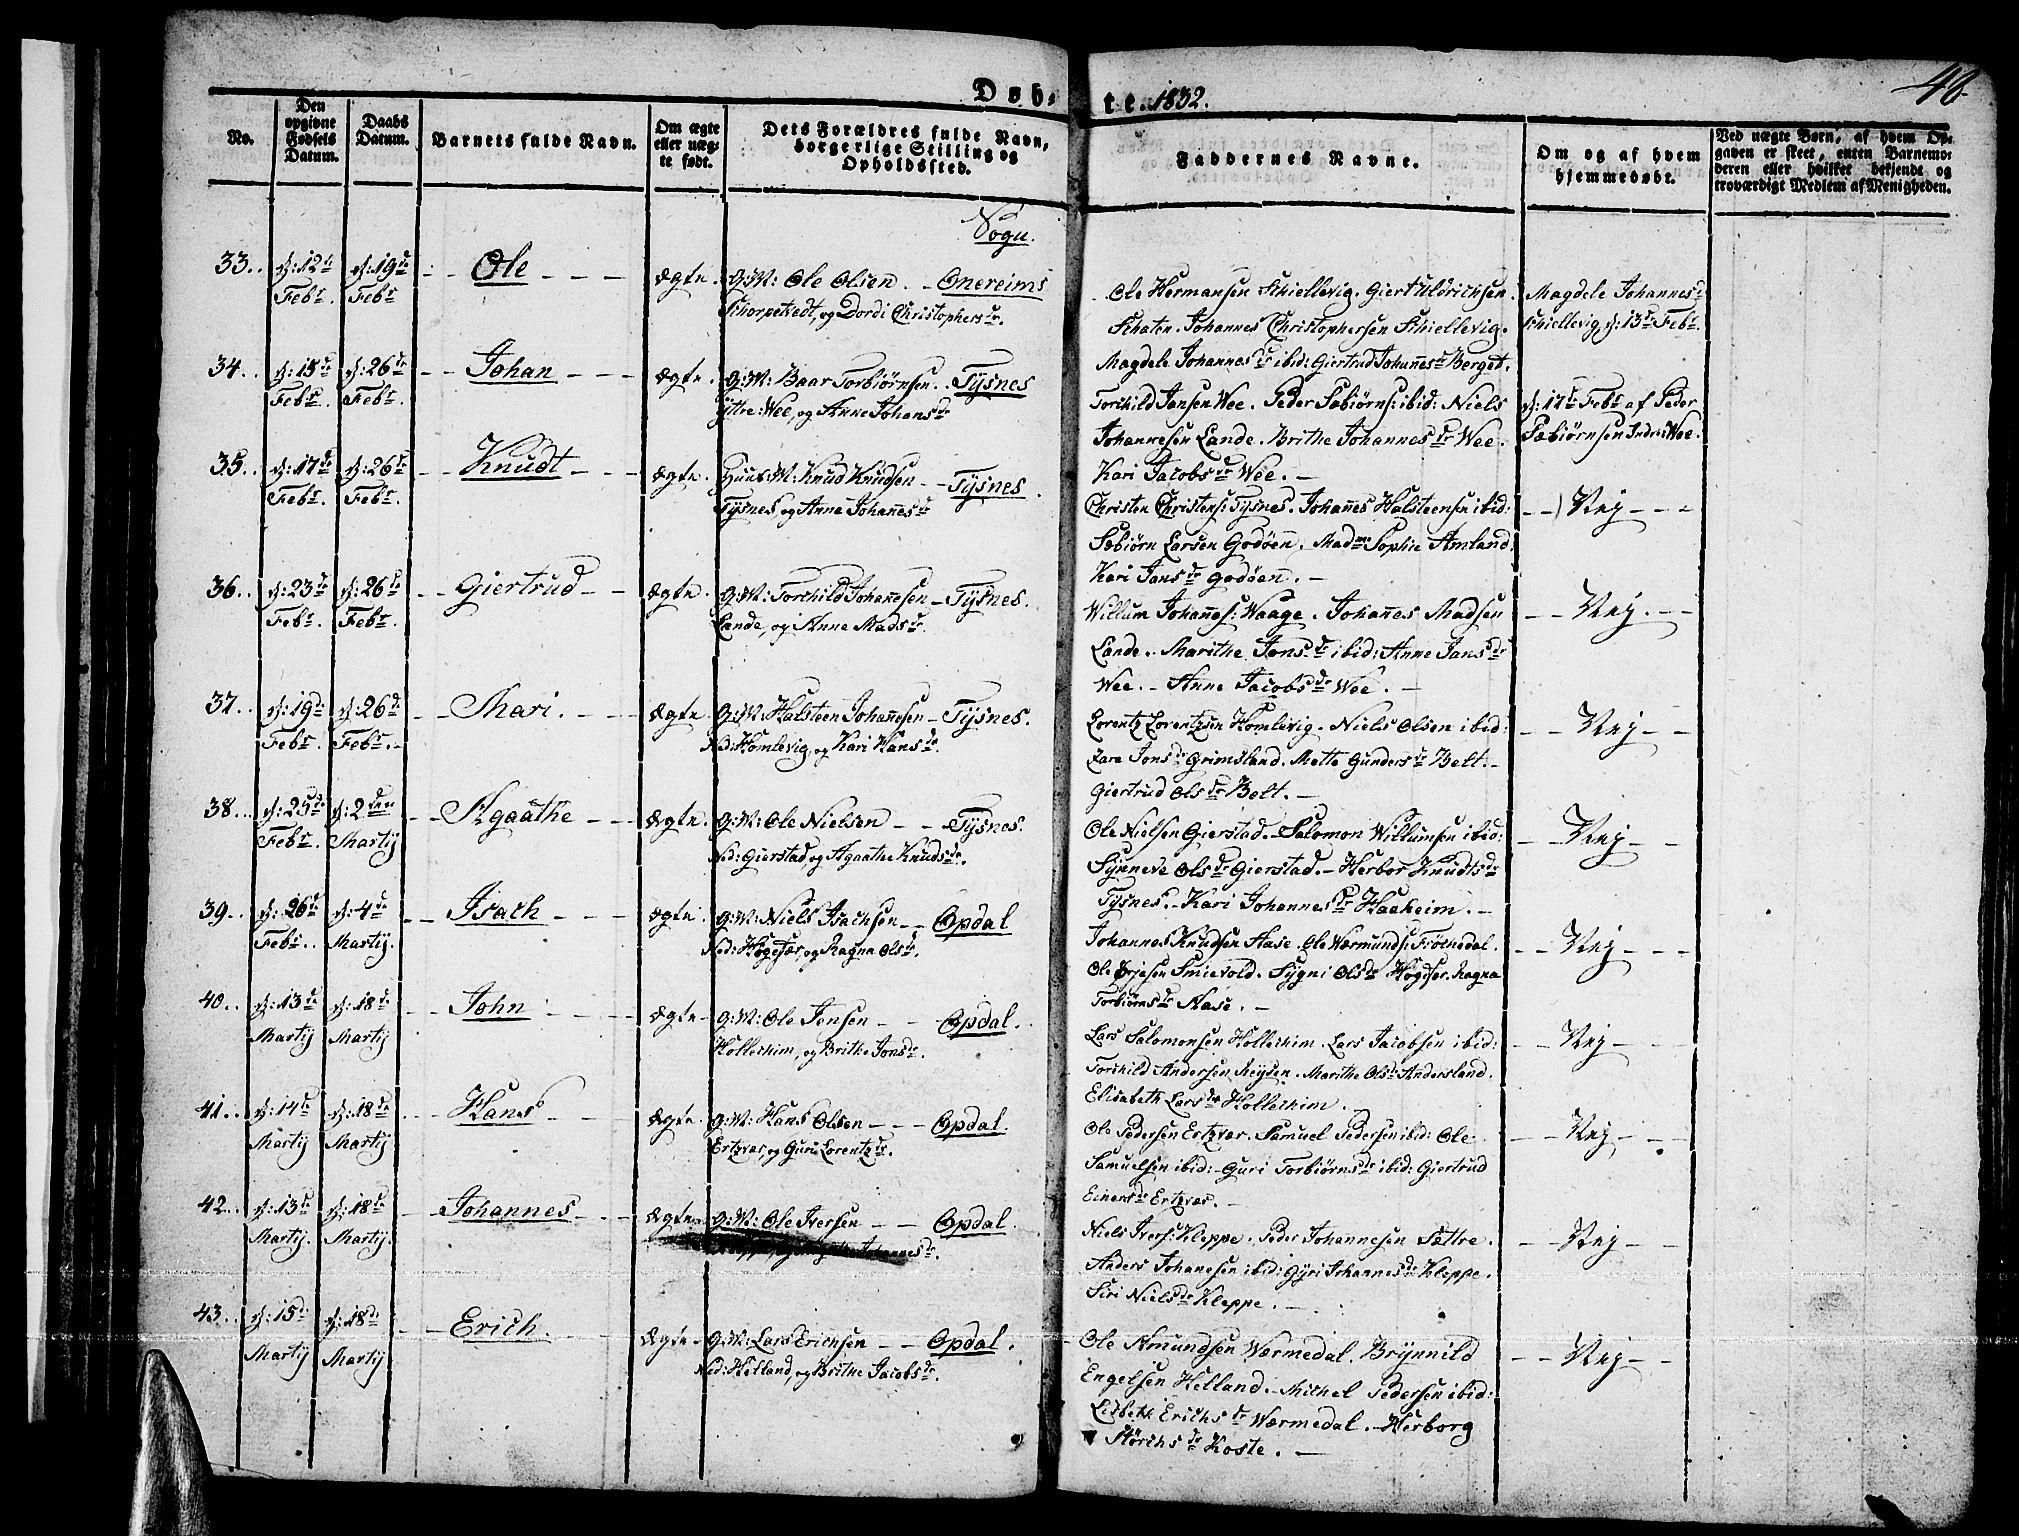 Døb-
te. 1832.
40.
No.
Den opgivne Fødsels Datum.
Daabs Datum.
Barnets fulde Navn.
Om ægte eller uægte født.
Dets Forældres fulde Navn, borgerlige Stilling og Opholdssted.
Faddernes Navne.
Om og af hvem hjemmedøbt.
Ved uægte Børn, af hvem Opgaven er skeet, enten Barnemoderen eller hvilket bekjendt og troværdigt Medlem af Menigheden.
Sogn.
33. d: 12te Febr d: 19de Febr Ole ægte. G:M: Ole Olsen Onereims
Schorpetvedt, og Dordi Christophersdr.
Ole Hermansen Schiellevig. Giert Uldrichsen
Schaten. Johannes Christophersen Schiellevig.
Magdele Johannesdr ibid: Giertrud Johannesdr Berget.
Magdele Johannesdr
Schiellevig, d: 13de Febr.
34. d: 15de Febr. d: 26de Febr. Johan ægte. G:M: Baar Torbiørnsen Tysnes
Yttre: Wee, og Anne Johansdr
Torchild Jansen Wee. Peder Sæbiørns: ibid: Niels
Johannesen Lande. Brithe Johannesdr Wee.
Kari Jacobsdr Wee.
d: 17de Febr af Peder
Sæbiørnsen Indre: Wee.
35. d: 17de Febr d: 26de Febr. Knudt ægte. Huus:M: Knud Knudsen Tysnes.
Tysnes, og Anne Johannesdr
Christen Christens: Tysnes. Johannes Halsteensen ibid:
Sæbiørn Larsen Godøen. Madme Sophie Amland.
Kari Jansdr Godøen.
Nej
36. d: 23de Febr. d: 26de Febr. Giertrud ægte. G:M: Torchild Johannesen Tysnes.
Lande, og Anne Madsdr.
Willum Johannes: Waage. Johannes Madsen
Lande. Marithe Jonsdr ibid: Anne Jansdr
Wee. Anne Jacobsdr Wee.
Nej.
37. d: 19de Febr. d: 26de Febr. Mari. ægte. G:M: Halsteen Johannesen Tysnes.
Ned: Homlevig, og Kari Hansdr.
Lorentz Lorentzsen Homlevig. Niels Olsen ibid:
Zara Jonsdr Grimsland. Mette Gundersdr Belt.
Giertrud Olsdr Belt.
Nej
38. d: 25de Febr. d: 2den Martij Agaathe ægte. G:M: Ole Nielsen Tysnes.
Ned: Gierstad, og Agaathe Knudsdr.
Ole Nielsen Gierstad. Salomon Willumsen ibid:
Synneve Olsdr Gierstad. Herbor Knudtsdr
Tysnes. Kari Johannesdr Haaheim.
Nej
39. d: 26de Febr. d: 4de Martij. Isach ægte. G:M: Niels Isachsen Opdal
Ned: Høgesær, og Ragna Olsdr.
Johannes Knudsen Aase. Ole Wærmunds: Frøchedal.
Ole Smievold. Sygni Olsdr Høgeser. Ragna
Torbiørnsdr Aase.
Nej
40. d: 13de Martij d: 18de Martij John ægte. G:M: Ole Jensen Opdal.
Hollechim, og Brithe Jonsdr.
Lars Salomonsen Hollechim. Lars Jacobsen ibid:
Torchild Andersen Reysen. Marithe Olsdr Andersland.
Elisabeth Larsdr Hollechim.
Nej
41. d: 14de Martij d: 18de Martij Hans ægte. G:M: Hans Olsen Opdal.
Ertzvær, og Guri Lorentzdr.
Ole Pedersen Ertzvær. Samuel Pedersen ibid: Ole
Samuelsen ibid: Guri Torbiørnsdr ibid: Giertrud
Einersdr Ertzvær.
Nej
42. d: 13de Martij. d: 18de Martij. Johannes ægte G:M: Ole Iversen Opdal
Johannesdr.
Niels Ivers: Kleppe. Peder Johannesen Sættre.
Anders Johannesen ibid: Gyri Johannesdr Kleppe.
Siri Nielsdr Kleppe.
Nej
43. d: 15de Martij d: 18de Martij Erich. ægte G:M: Lars Erichsen Opdal.
Ned: Helland, og Brithe Jacobsdr.
Ole Amundsen Wærmedal. Brynnild
Engelsen Helland. Michel Pedersen ibid:
Lisbeth Erichsdr Wærmedal. Herborg
Størchsdr Koste.
Nej